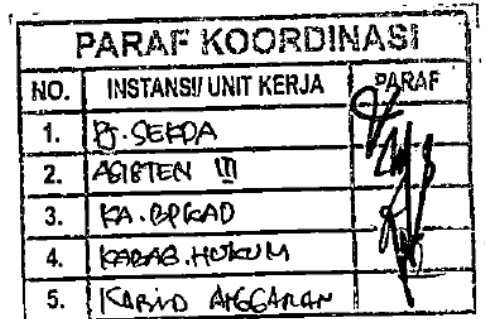 PARAF KOORDINASI
NO. INSTANSI/ UNIT KERJA PARAF
1. Pj. SEKDA
2. ASISTEN III
3. KA. BPKAD
4. KABAG. HUKUM
5. KABID ANGGARAN